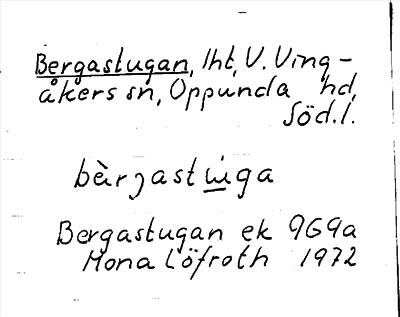 Bergastugan, lht, V. Ving-
åkers sn, Oppunda hd,
Söd.l.
bàrjastùga
Bergastugan ek 9G9a
Mona Löfroth 1972